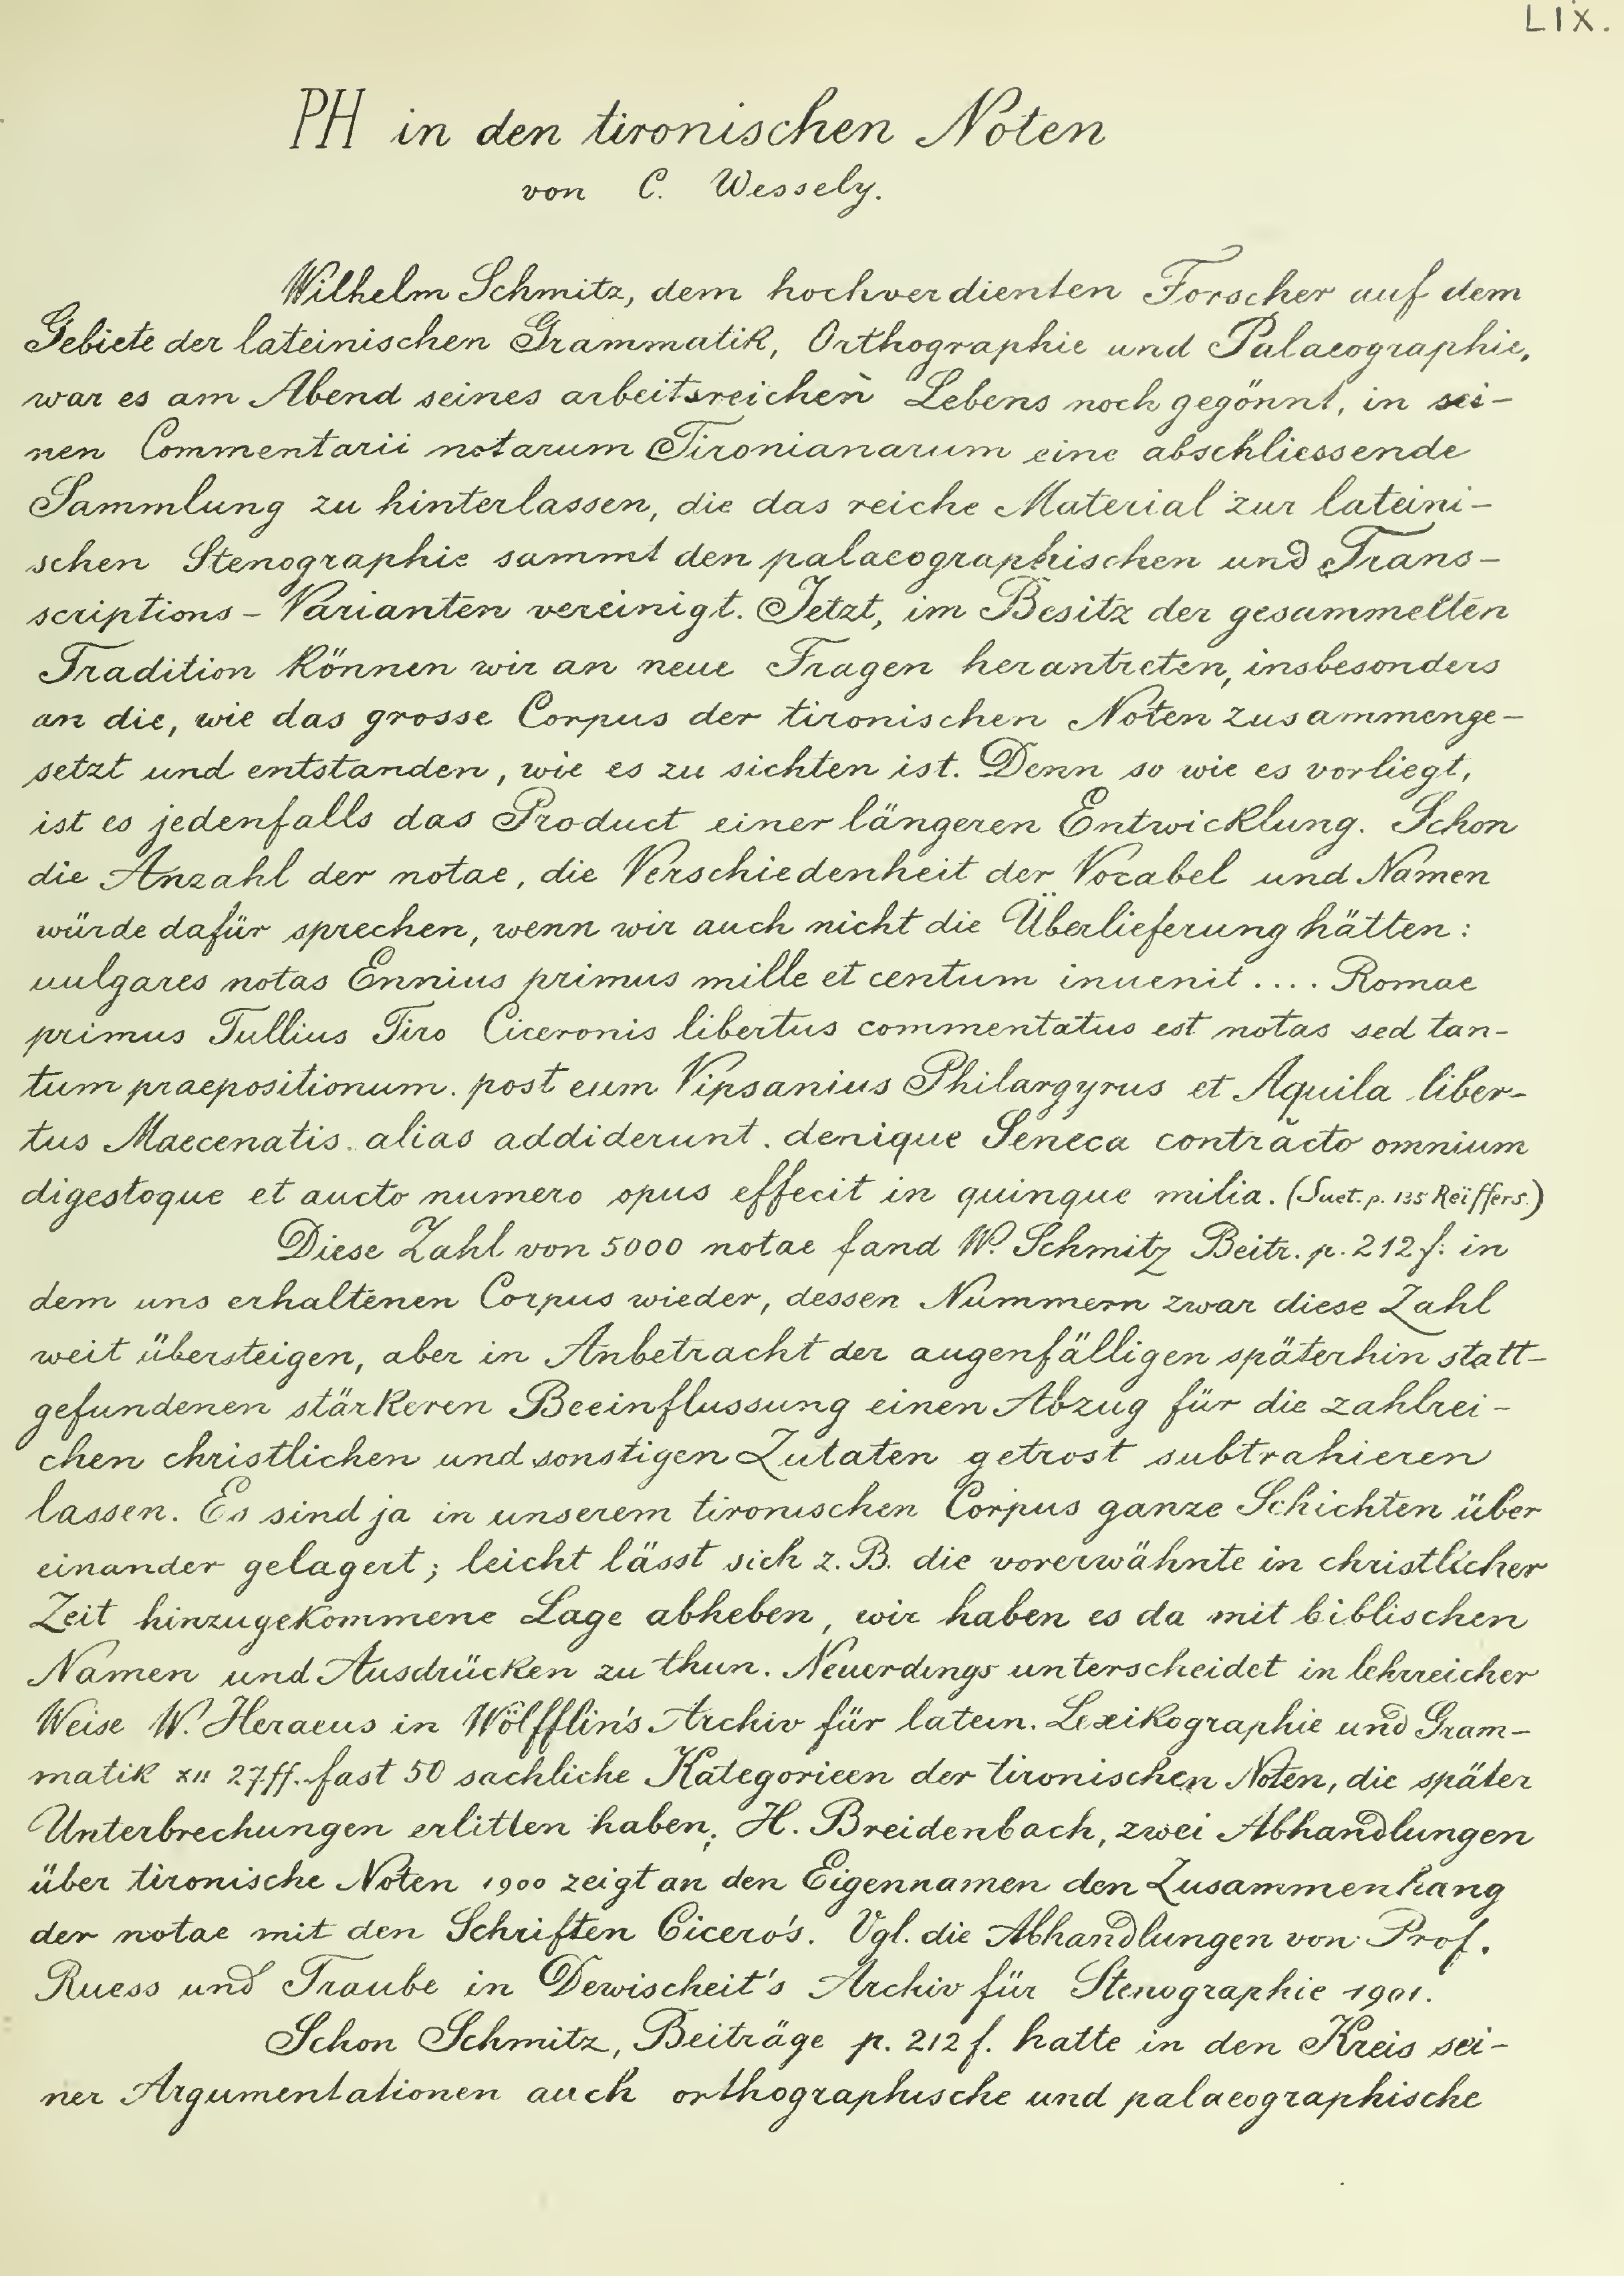 LIX.
PH in den tironischen Noten
von C. Wessely.
Wilhelm Schmitz, dem hochverdienten Forscher auf dem
Gebiete der lateinischen Grammatik, Orthographie und Palaeographie,
war es am Abend seines arbeitsreichen Lebens noch gegönnt, in sei-
nen Commentarii notarum Tironianarum eine abschliessende
Sammlung zu hinterlassen, die das reiche Material zur lateini-
schen Stenographie sammt den palaeographischen und Trans-
scriptions-Varianten vereinigt. Jetzt, im Besitz der gesammelten
Tradition können wir an neue Fragen herantreten, insbesonders
an die, wie das grosse Corpus der tironischen Noten zusammenge-
setzt und entstanden, wie es zu sichten ist. Denn so wie es vorliegt,
ist es jedenfalls das Product einer längeren Entwicklung. Schon
die Anzahl der notae, die Verschiedenheit der Vocabel und Namen
würde dafür sprechen, wenn wir auch nicht die Überlieferung hätten:
uulgares notas Ennius primus mille et centum inuenit .... Romae
primus Tullius Tiro Ciceronis libertus commentatus est notas sed tan-
tum praepositionum. post eum Vipsanius Philargyrus et Aquila liber-
tus Maecenatis alias addiderunt. denique Seneca contracto omnium
digestoque et aucto numero opus effecit in quinque milia. (Suet. p. 135 Reiffers.)
Diese Zahl von 5000 notae fand W. Schmitz Beitr. p. 212 f. in
dem uns erhaltenen Corpus wieder, dessen Nummern zwar diese Zahl
weit übersteigen, aber in Anbetracht der augenfälligen späterhin statt-
gefundenen stärkeren Beeinflussung einen Abzug für die zahlrei-
chen christlichen und sonstigen Zutaten getrost subtrahieren
lassen. Es sind ja in unserem tironischen Corpus ganze Schichten über
einander gelagert; leicht lässt sich z. B. die vorerwähnte in christlicher
Zeit hinzugekommene Lage abheben, wir haben es da mit biblischen
Namen und Ausdrücken zu thun. Neuerdings unterscheidet in lehrreicher
Weise W. Heraeus in Wölfflin's Archiv für latein. Lexikographie und Gram-
matik XII 27 ff. fast 50 sachliche Kategorieen der tironischen Noten, die später
Unterbrechungen erlitten haben; H. Breidenbach, zwei Abhandlungen
über tironische Noten 1900 zeigt an den Eigennamen den Zusammenhang
der notae mit den Schriften Cicero's. Vgl. die Abhandlungen von Prof.
Ruess und Traube in Dewischeit's Archiv für Stenographie 1901.
Schon Schmitz, Beiträge p. 212 f. hatte in den Kreis sei-
ner Argumentationen auch orthographische und palaeographische